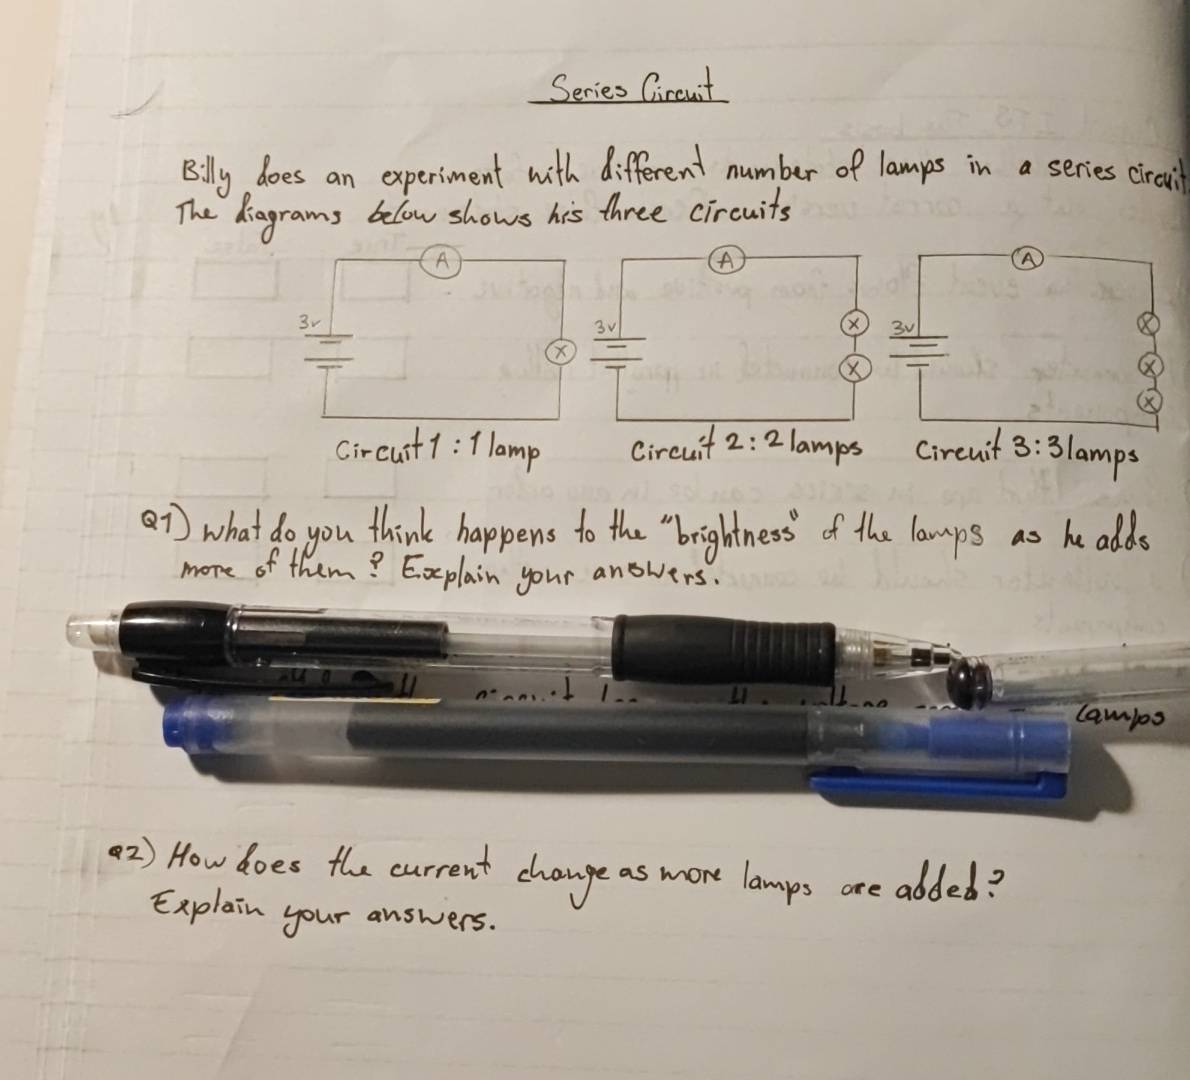 Series Circuit
Billy does an experiment with different number of lamps in a series circuit.
The diagrams below shows his three circuits
A A A
3v 3v 3v
X X X
X X
X
Circuit 1 : 1 lamp Circuit 2 : 2 lamps Circuit 3 : 3 lamps
Q1) what do you think happens to the "brightness" of the lamps as he adds
more of them? Explain your answers.
lamps
Q2) How does the current change as more lamps are added?
Explain your answers.